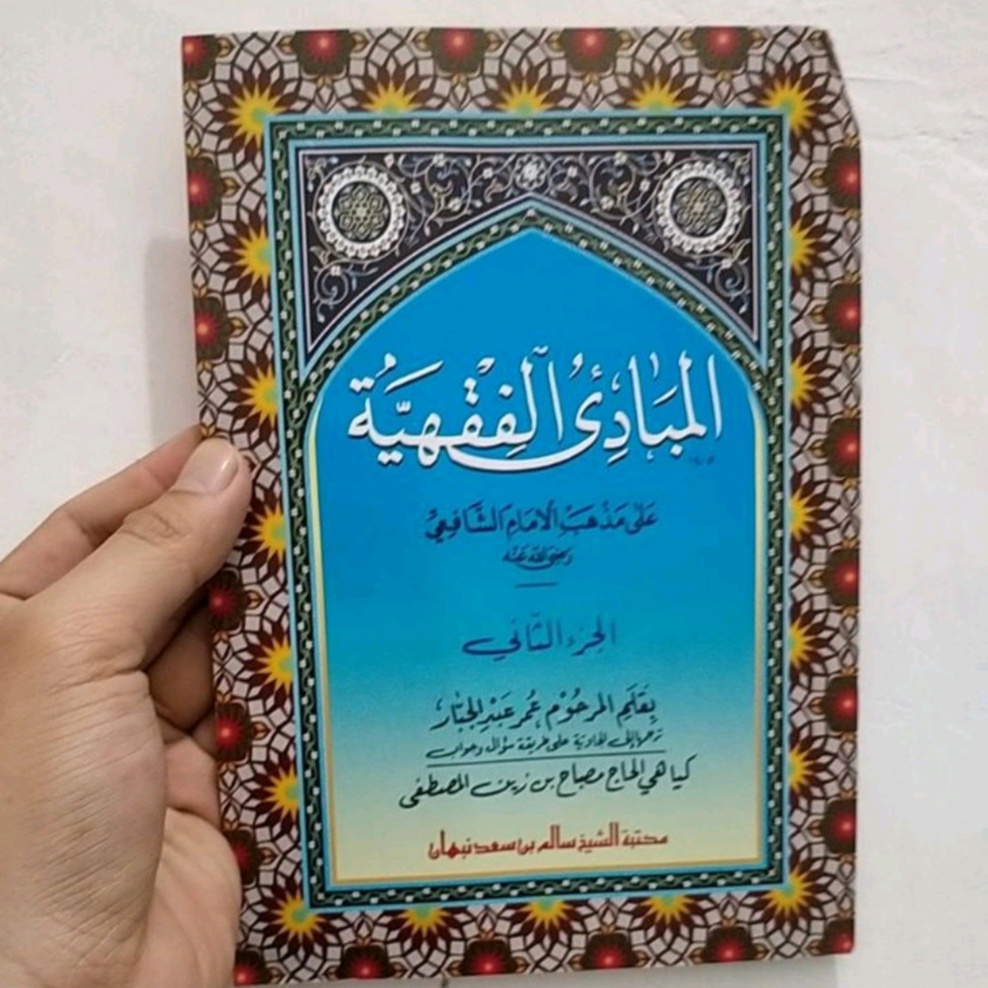 المَبَادِئُ الفِقْهِيَّة
عَلَى مَذْهَبِ الإمَامِ الشَّافِعِيْ
رضي الله عنه
الجزء الثَّاني
بِقَلَمِ المرحُوْم عُمَر عَبْدِ الجبَّار
ترجمها إلى الجاوية على طريقة سؤال وجواب
كياهي الحاج مصباح بن زين المصطفى
مكتبة الشيخ سالم بن سعد نبهان